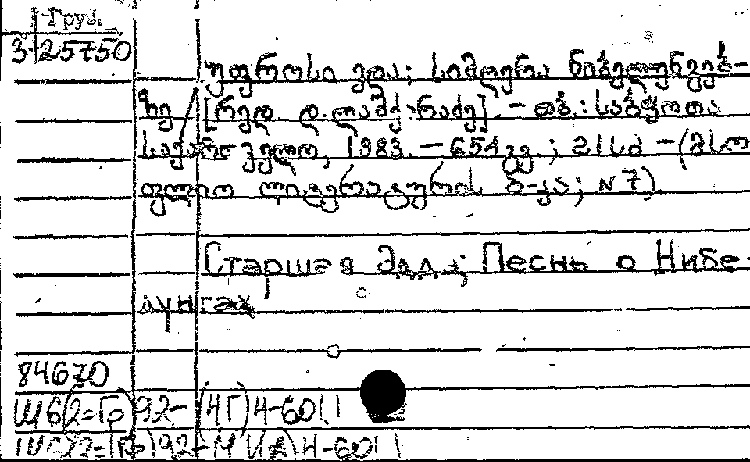 Груз.
3-25750
უფროსი ედა; სიმღერა ნიბელუნგებ-
ზე / [რედ. დ. ლაშქარაძე]. – თბ.: საბჭოთა
საქართველო, 1983. – 654 გვ.; 21 სმ – (მსო
ფლიო ლიტერატურის ბ-კა; N 7).
Старшая Эдда; Песнь о Нибе-
лунгах
84670
Ш6(2=Гр)92- (4Г) 4-601